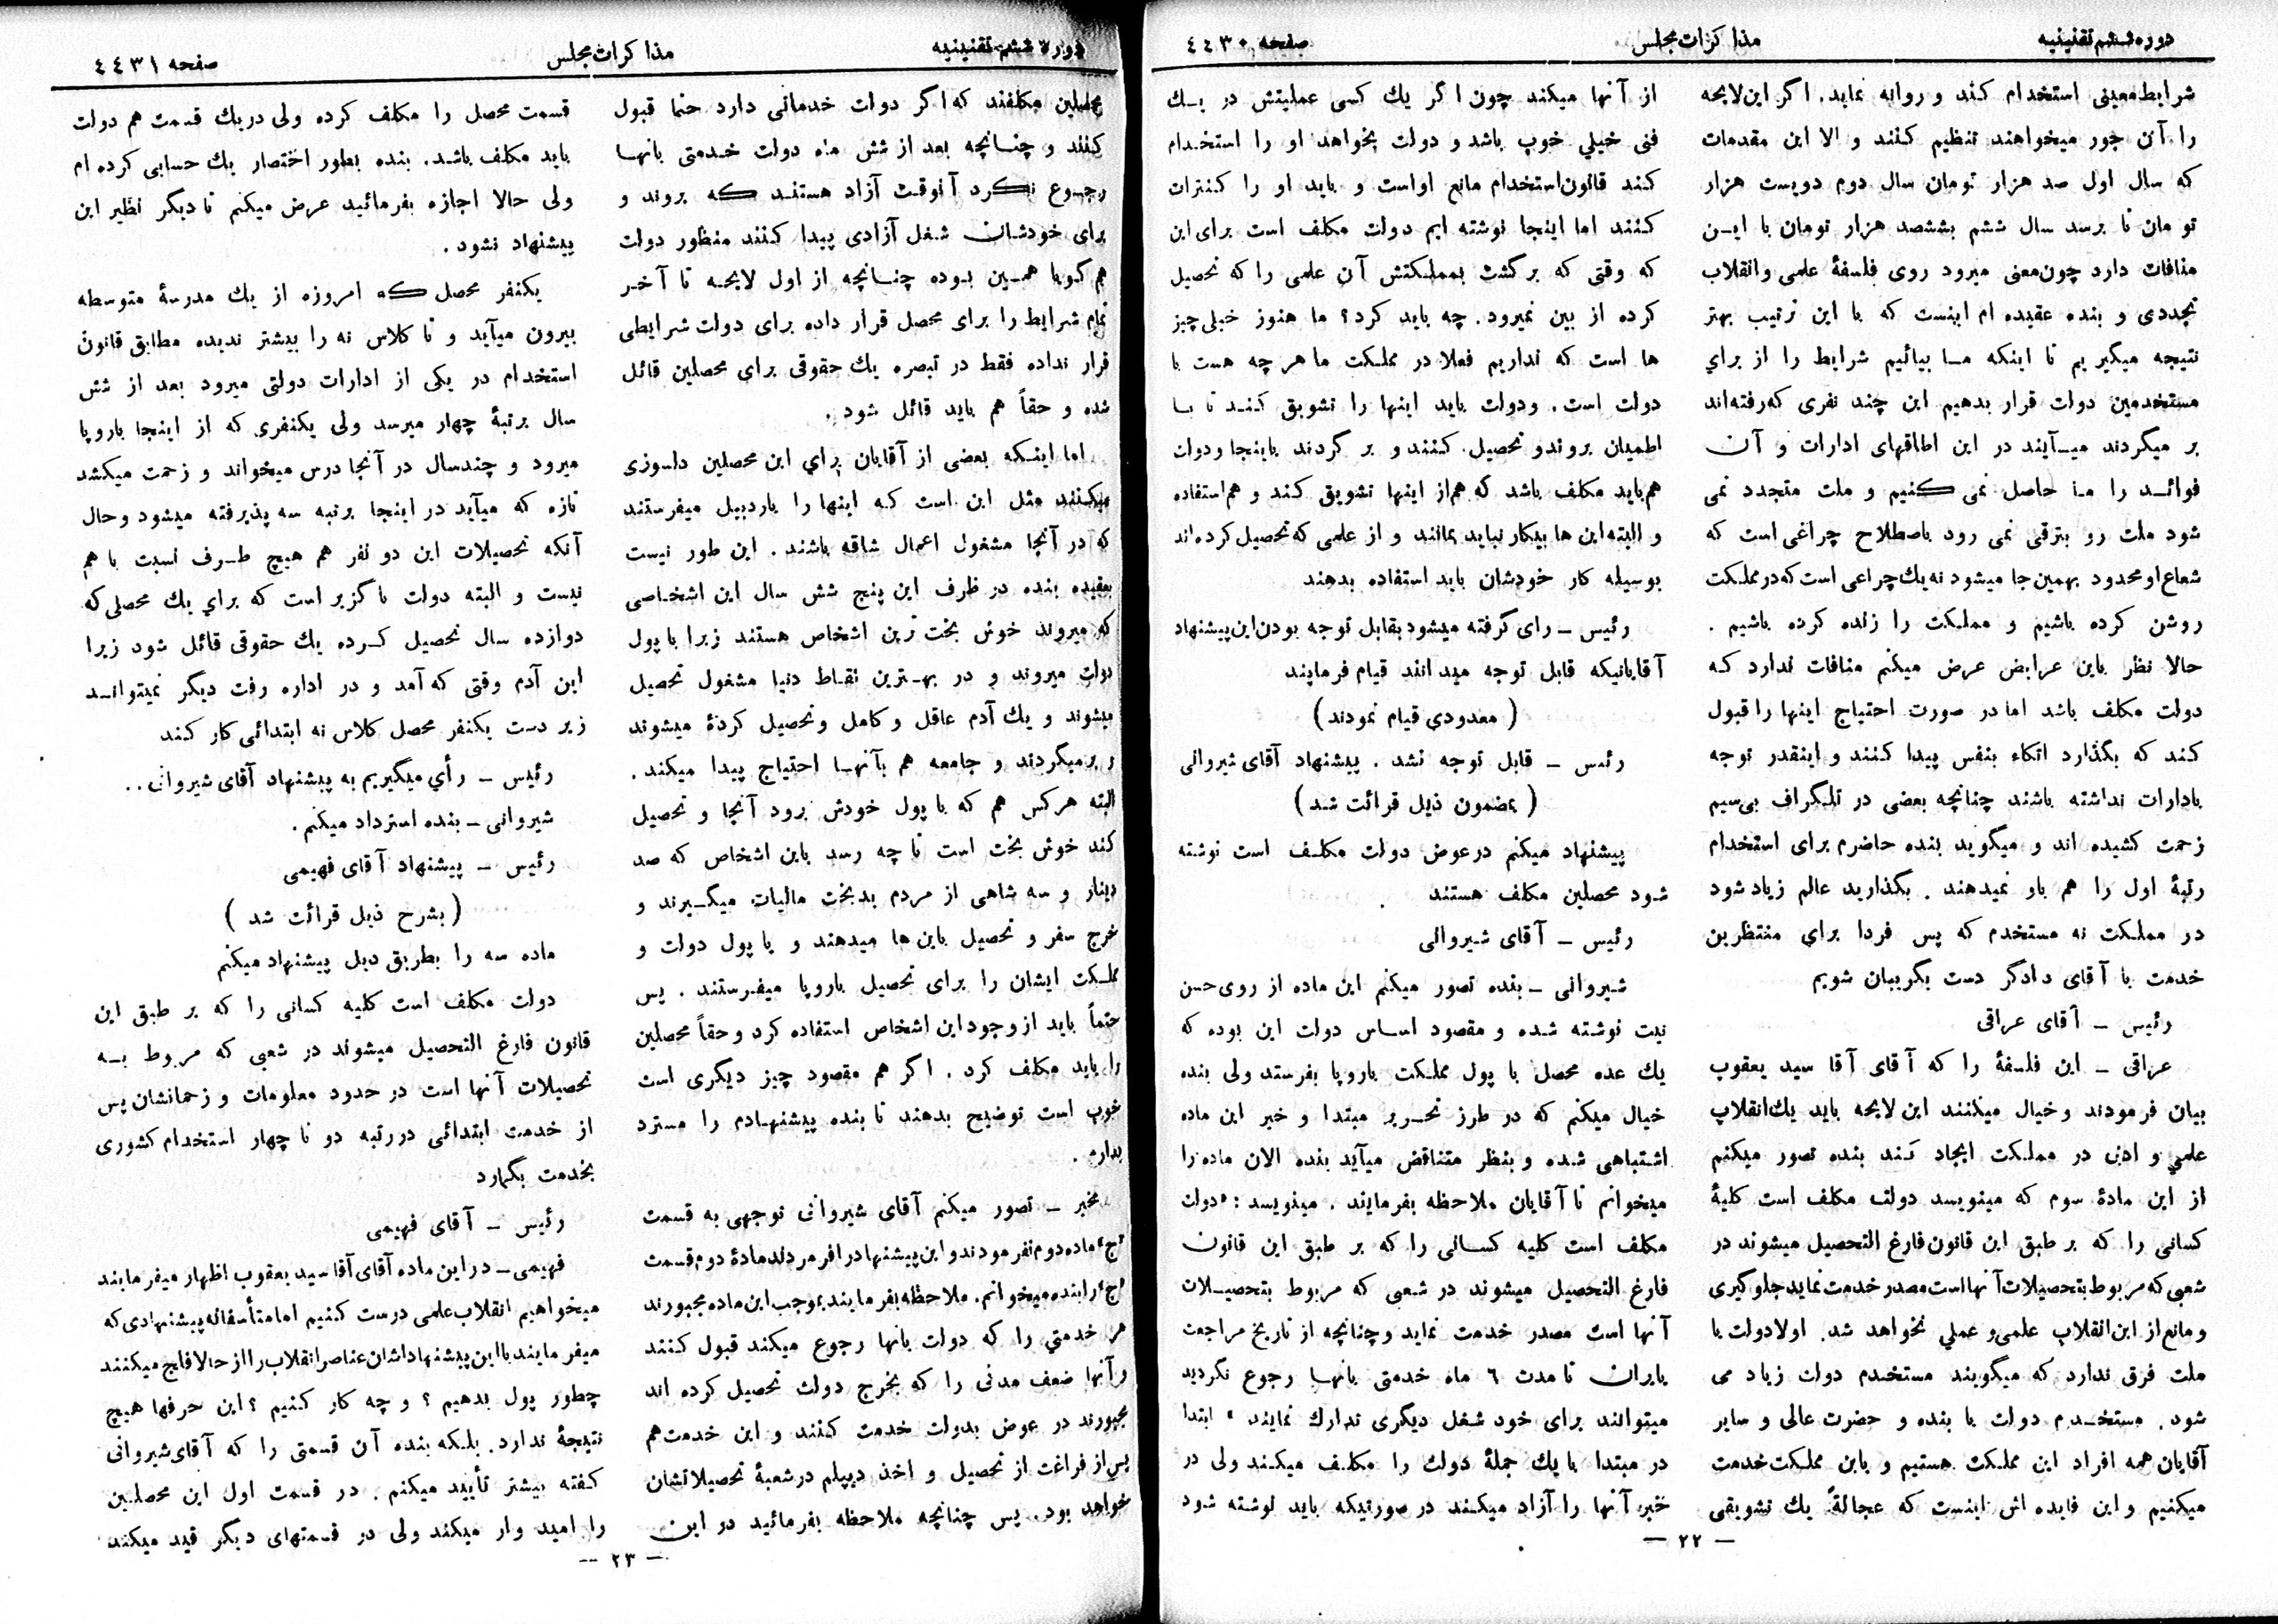 دوره ششم تقنینیه
مذاکرات مجلس
صفحه ٤٤٣٠
شرایط معینی استخدام کند و روانه نماید. اگر این لایحه
را آن جور میخواهند تنظیم کنند و الا این مقدمات
که سال اول صد هزار تومان سال دوم دویست هزار
تومان تا برسد سال ششم بششصد هزار تومان با این
منافات دارد چون معنی میرود روی فلسفهٔ علمی و انقلاب
تجددی و بنده عقیده ام اینست که با این ترتیب بهتر
نتیجه میگیریم تا اینکه ما بیائیم شرایط را از برای
مستخدمین دولت قرار بدهیم این چند نفری که رفته‌اند
بر میگردند میآیند در این اطاقهای ادارات و آن
فوائد را ما حاصل نمی کنیم و ملت متجدد نمی
شود ملت رو بترقی نمی رود باصطلاح چراغی است که
شعاع او محدود بهمین جا میشود نه یك چراغی است که در مملکت
روشن کرده باشیم و مملکت را زنده کرده باشیم .
حالا نظر باین عرایض عرض میکنم منافات ندارد که
دولت مکلف باشد اما در صورت احتیاج اینها را قبول
کند که بگذارد اتکاء بنفس پیدا کنند و اینقدر توجه
بادارات نداشته باشند چنانچه بعضی در تلگراف بی‌سیم
زحمت کشیده اند و میگوید بنده حاضرم برای استخدام
رتبهٔ اول را هم باو نمیدهند . بگذارید عالم زیاد شود
در مملکت نه مستخدم که پس فردا برای منتظرین
خدمت با آقای دادگر دست بگریبان شویم
رئیس ـ آقای عراقی
عراقی ـ این فلسفهٔ را که آقای آقا سید یعقوب
بیان فرمودند و خیال میکنند این لایحه باید یك انقلاب
علمی و ادبی در مملکت ایجاد کند بنده تصور میکنم
از این مادهٔ سوم که مینویسد دولت مکلف است کلیهٔ
کسانی را که بر طبق این قانون فارغ التحصیل میشوند در
شعبی که مربوط بتحصیلات آنها است مصدر خدمت نماید جلوگیری
و مانع از این انقلاب علمی و عملی نخواهد شد. اولا دولت با
ملت فرق ندارد که میگویند مستخدم دولت زیاد می
شود. مستخدم دولت یا بنده و حضرت عالی و سایر
آقایان همه افراد این مملکت هستیم و باین مملکت خدمت
میکنیم و این فایده اش اینست که عجالةً یك تشویقی
از آنها میکند چون اگر یك کسی عملیتش در یك
فنی خیلی خوب باشد و دولت بخواهد او را استخدام
کند قانون استخدام مانع او است و باید او را کنترات
کنند اما اینجا نوشته ایم دولت مکلف است برای این
که وقتی که برگشت بمملکتش آن علمی را که تحصیل
کرده از بین نمیرود. چه باید کرد؟ ما هنوز خیلی چیز
ها است که نداریم فعلا در مملکت ما هر چه هست با
دولت است. و دولت باید اینها را تشویق کند تا با
اطمینان بروند و تحصیل کنند و بر گردند باینجا و دولت
هم باید مکلف باشد که هم از اینها تشویق کند و هم استفاده
و البته این ها بیکار نباید بمانند و از علمی که تحصیل کرده‌اند
بوسیله کار خودشان باید استفاده بدهند
رئیس ـ رای گرفته میشود بقابل توجه بودن این پیشنهاد
آقایانیکه قابل توجه میدانند قیام فرمایند
( معدودی قیام نمودند )
رئیس ـ قابل توجه نشد . پیشنهاد آقای شیروانی
( بمضمون ذیل قرائت شد )
پیشنهاد میکنم در عوض دولت مکلف است نوشته
شود محصلین مکلف هستند
رئیس ـ آقای شیروانی
شیروانی ـ بنده تصور میکنم این ماده از روی حسن
نیت نوشته شده و مقصود اساس دولت این بوده که
یك عده محصل با پول مملکت باروپا بفرستد ولی بنده
خیال میکنم که در طرز تحریر مبتدا و خبر این ماده
اشتباهی شده و بنظر متناقض میآید بنده الان ماده را
میخوانم تا آقایان ملاحظه بفرمایند . مینویسد : «دولت
مکلف است کلیه کسانی را که بر طبق این قانون
فارغ التحصیل میشوند در شعبی که مربوط بتحصیلات
آنها است مصدر خدمت نماید و چنانچه از تاریخ مراجعت
بایران تا مدت ٦ ماه خدمتی بانها رجوع نگردید
میتوانند برای خود شغل دیگری تدارك نمایند » ابتدا
در مبتدا با یك جملهٔ دولت را مکلف میکند ولی در
خبر آنها را آزاد میکند در صورتیکه باید نوشته شود
— ٢٢ —
دوره ششم تقنینیه
مذاکرات مجلس
صفحه ٤٤٣١
محصلین مکلفند که اگر دولت خدماتی دارد حتما قبول
کنند و چنانچه بعد از شش ماه دولت خدمتی بانها
رجوع نکرد آنوقت آزاد هستند که بروند و
برای خودشان شغل آزادی پیدا کنند منظور دولت
هم گویا همین بوده چنانچه از اول لایحه تا آخر
تمام شرایط را برای محصل قرار داده برای دولت شرایطی
قرار نداده فقط در تبصره یك حقوقی برای محصلین قائل
شده و حقاً هم باید قائل شود .
اما اینکه بعضی از آقایان برای این محصلین دلسوزی
میکنند مثل این است که اینها را باردبیل میفرستند
که در آنجا مشغول اعمال شاقه باشند . این طور نیست
بعقیده بنده در ظرف این پنج شش سال این اشخاصی
که میروند خوش بخت ترین اشخاص هستند زیرا با پول
دولت میروند و در بهترین نقاط دنیا مشغول تحصیل
میشوند و یك آدم عاقل و کامل و تحصیل کردهٔ میشوند
و برمیگردند و جامعه هم بآنها احتیاج پیدا میکند .
البته هر کس هم که با پول خودش برود آنجا و تحصیل
کند خوش بخت است تا چه رسد باین اشخاص که صد
دینار و سه شاهی از مردم بدبخت مالیات میگیرند و
خرج سفر و تحصیل باین ها میدهند و با پول دولت و
مملکت ایشان را برای تحصیل باروپا میفرستند . پس
حتماً باید از وجود این اشخاص استفاده کرد و حقاً محصلین
را باید مکلف کرد . اگر هم مقصود چیز دیگری است
خوب است توضیح بدهند تا بنده پیشنهادم را مسترد
بدارم .
مخبر ـ تصور میکنم آقای شیروانی توجهی به قسمت
«ج» ماده دوم نفرمودند و این پیشنهاد را فرمودند مادهٔ دوم قسمت
«ج» را بنده میخوانم. ملاحظه بفرمایند بموجب این ماده مجبورند
هر خدمتی را که دولت بانها رجوع میکند قبول کنند
و آنها ضعف مدتی را که بخرج دولت تحصیل کرده اند
مجبورند در عوض بدولت خدمت کنند و این خدمت هم
پس از فراغت از تحصیل و اخذ دیپلم در شعبهٔ تحصیلاتشان
خواهد بود. پس چنانچه ملاحظه بفرمائید در این
قسمت محصل را مکلف کرده ولی در یك قسمت هم دولت
باید مکلف باشد. بنده بطور اختصار یك حسابی کرده ام
ولی حالا اجازه بفرمائید عرض میکنم تا دیگر نظیر این
پیشنهاد نشود .
یکنفر محصل که امروزه از یك مدرسهٔ متوسطه
بیرون میآید و تا کلاس نه را بیشتر ندیده مطابق قانون
استخدام در یکی از ادارات دولتی میرود بعد از شش
سال برتبهٔ چهار میرسد ولی یکنفری که از اینجا باروپا
میرود و چند سال در آنجا درس میخواند و زحمت میکشد
تازه که میآید در اینجا برتبه سه پذیرفته میشود و حال
آنکه تحصیلات این دو نفر هم هیچ طرف نسبت با هم
نیست و البته دولت ناگزیر است که برای یك محصلی که
دوازده سال تحصیل کرده یك حقوقی قائل شود زیرا
این آدم وقتی که آمد و در اداره رفت دیگر نمیتواند
زیر دست یکنفر محصل کلاس نه ابتدائی کار کند
رئیس ـ رأی میگیریم به پیشنهاد آقای شیروانی . .
شیروانی ـ بنده استرداد میکنم .
رئیس ـ پیشنهاد آقای فهیمی
( بشرح ذیل قرائت شد )
ماده سه را بطریق ذیل پیشنهاد میکنم
دولت مکلف است کلیه کسانی را که بر طبق این
قانون فارغ التحصیل میشوند در شعبی که مربوط به
تحصیلات آنها است در حدود معلومات و زحماتشان پس
از خدمت ابتدائی در رتبه دو تا چهار استخدام کشوری
بخدمت بگمارد
رئیس ـ آقای فهیمی
فهیمی ـ در این ماده آقای آقا سید یعقوب اظهار میفرمایند
میخواهیم انقلاب علمی درست کنیم اما متأسفانه پیشنهادی که
میفرمایند با این پیشنهاداتشان عناصر انقلاب را از حالا فلج میکنند
چطور پول بدهیم ؟ و چه کار کنیم ؟ این حرفها هیچ
نتیجهٔ ندارد. بلکه بنده آن قسمتی را که آقای شیروانی
گفته بیشتر تأیید میکنم . در قسمت اول این محصلین
را امید وار میکند ولی در قسمتهای دیگر قید میکند
— ٢٣ —